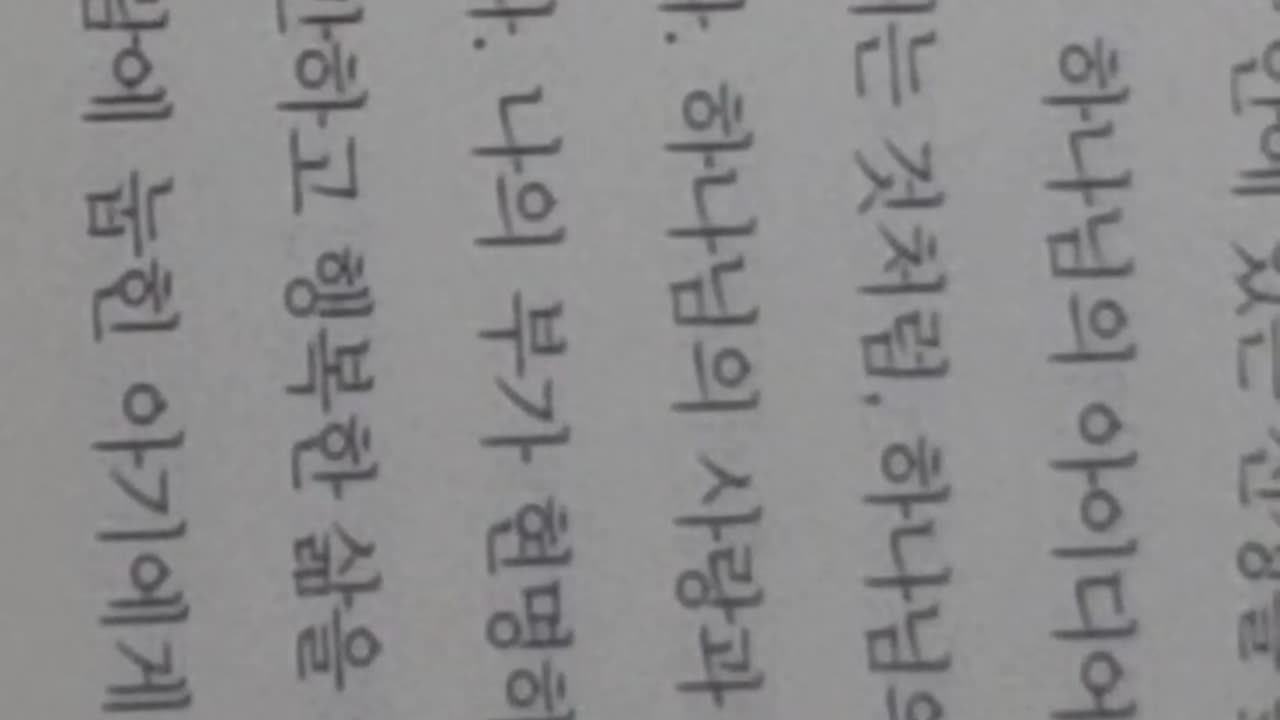 안에 있는 신성을
하나님의 아이디어
는 것처럼, 하나님의
다. 하나님의 사랑과
다. 나의 부가 현명하
안하고 행복한 삶을
눕힌 아기에게